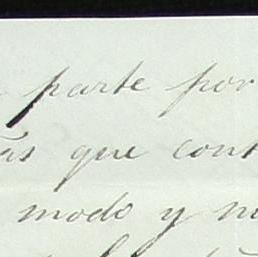 parte por
que cont
modo y m